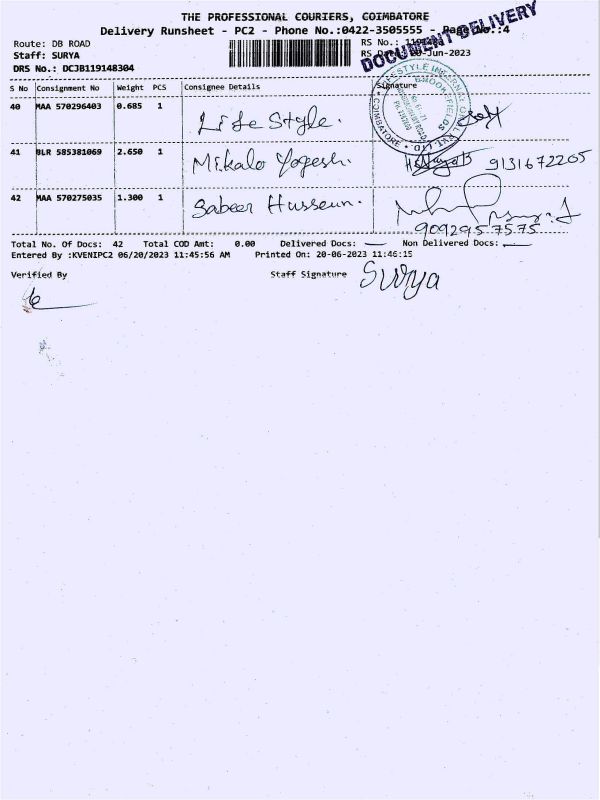 THE PROFESSIONAL COURIERS, COIMBATORE
Delivery Runsheet - PC2 - Phone No.:0422-3505555 - Page No.:4
DOCUMENT DELIVERY
Route: DB ROAD
RS No.:
Staff: SURYA
RS Date: 20-Jun-2023
DRS No.: DCJB119148304
S No Consignment No Weight PCS Consignee Details Signature
40 MAA 570296403 0.685 1 Life Style.
41 BLR 585381069 2.650 1 Mikalo Yogesh. 9131672205
42 MAA 570275035 1.300 1 Sabeer Husseun.
9092957575
Total No. Of Docs: 42 Total COD Amt: 0.00 Delivered Docs: Non Delivered Docs:
Entered By :KVENIPC2 06/20/2023 11:45:56 AM Printed On: 20-06-2023 11:46:15
Verified By Staff Signature Surya